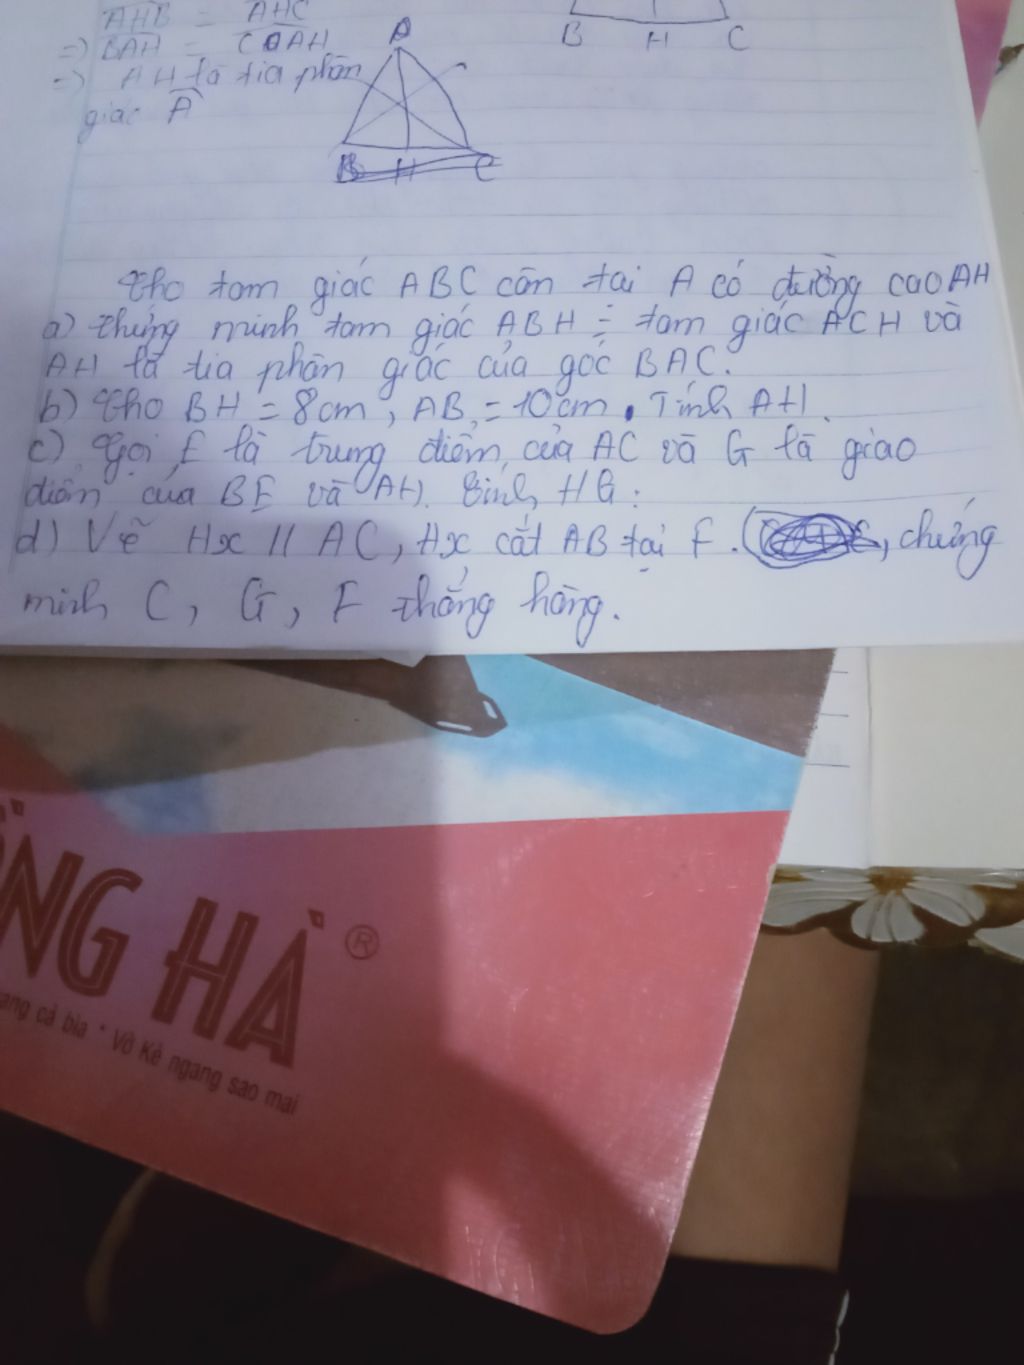 AHB = AHC
B H C
=> BAH = CAH
A
=> AH là tia phân
giác A
B H C
Cho tam giác ABC cân tại A có đường cao AH
a) chứng minh tam giác ABH = tam giác ACH và
AH là tia phân giác của góc BAC.
b) Cho BH = 8cm, AB = 10cm. Tính AH.
c) Gọi E là trung điểm của AC và G là giao
điểm của BE và AH. Tính HG.
d) Vẽ Hx // AC, Hx cắt AB tại F. , chứng
minh C, G, F thẳng hàng.
ỒNG HÀ ®
ang cả bìa * Vở Kẻ ngang sao mai